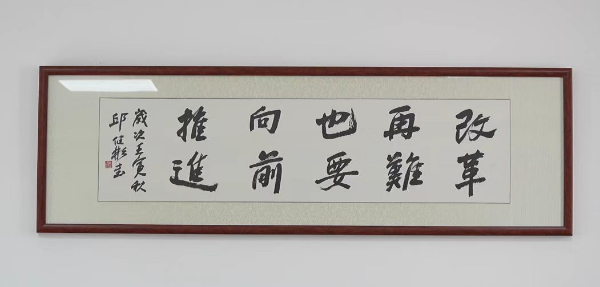 改革
再難
也要
向前
推進
歲次壬寅秋
邱